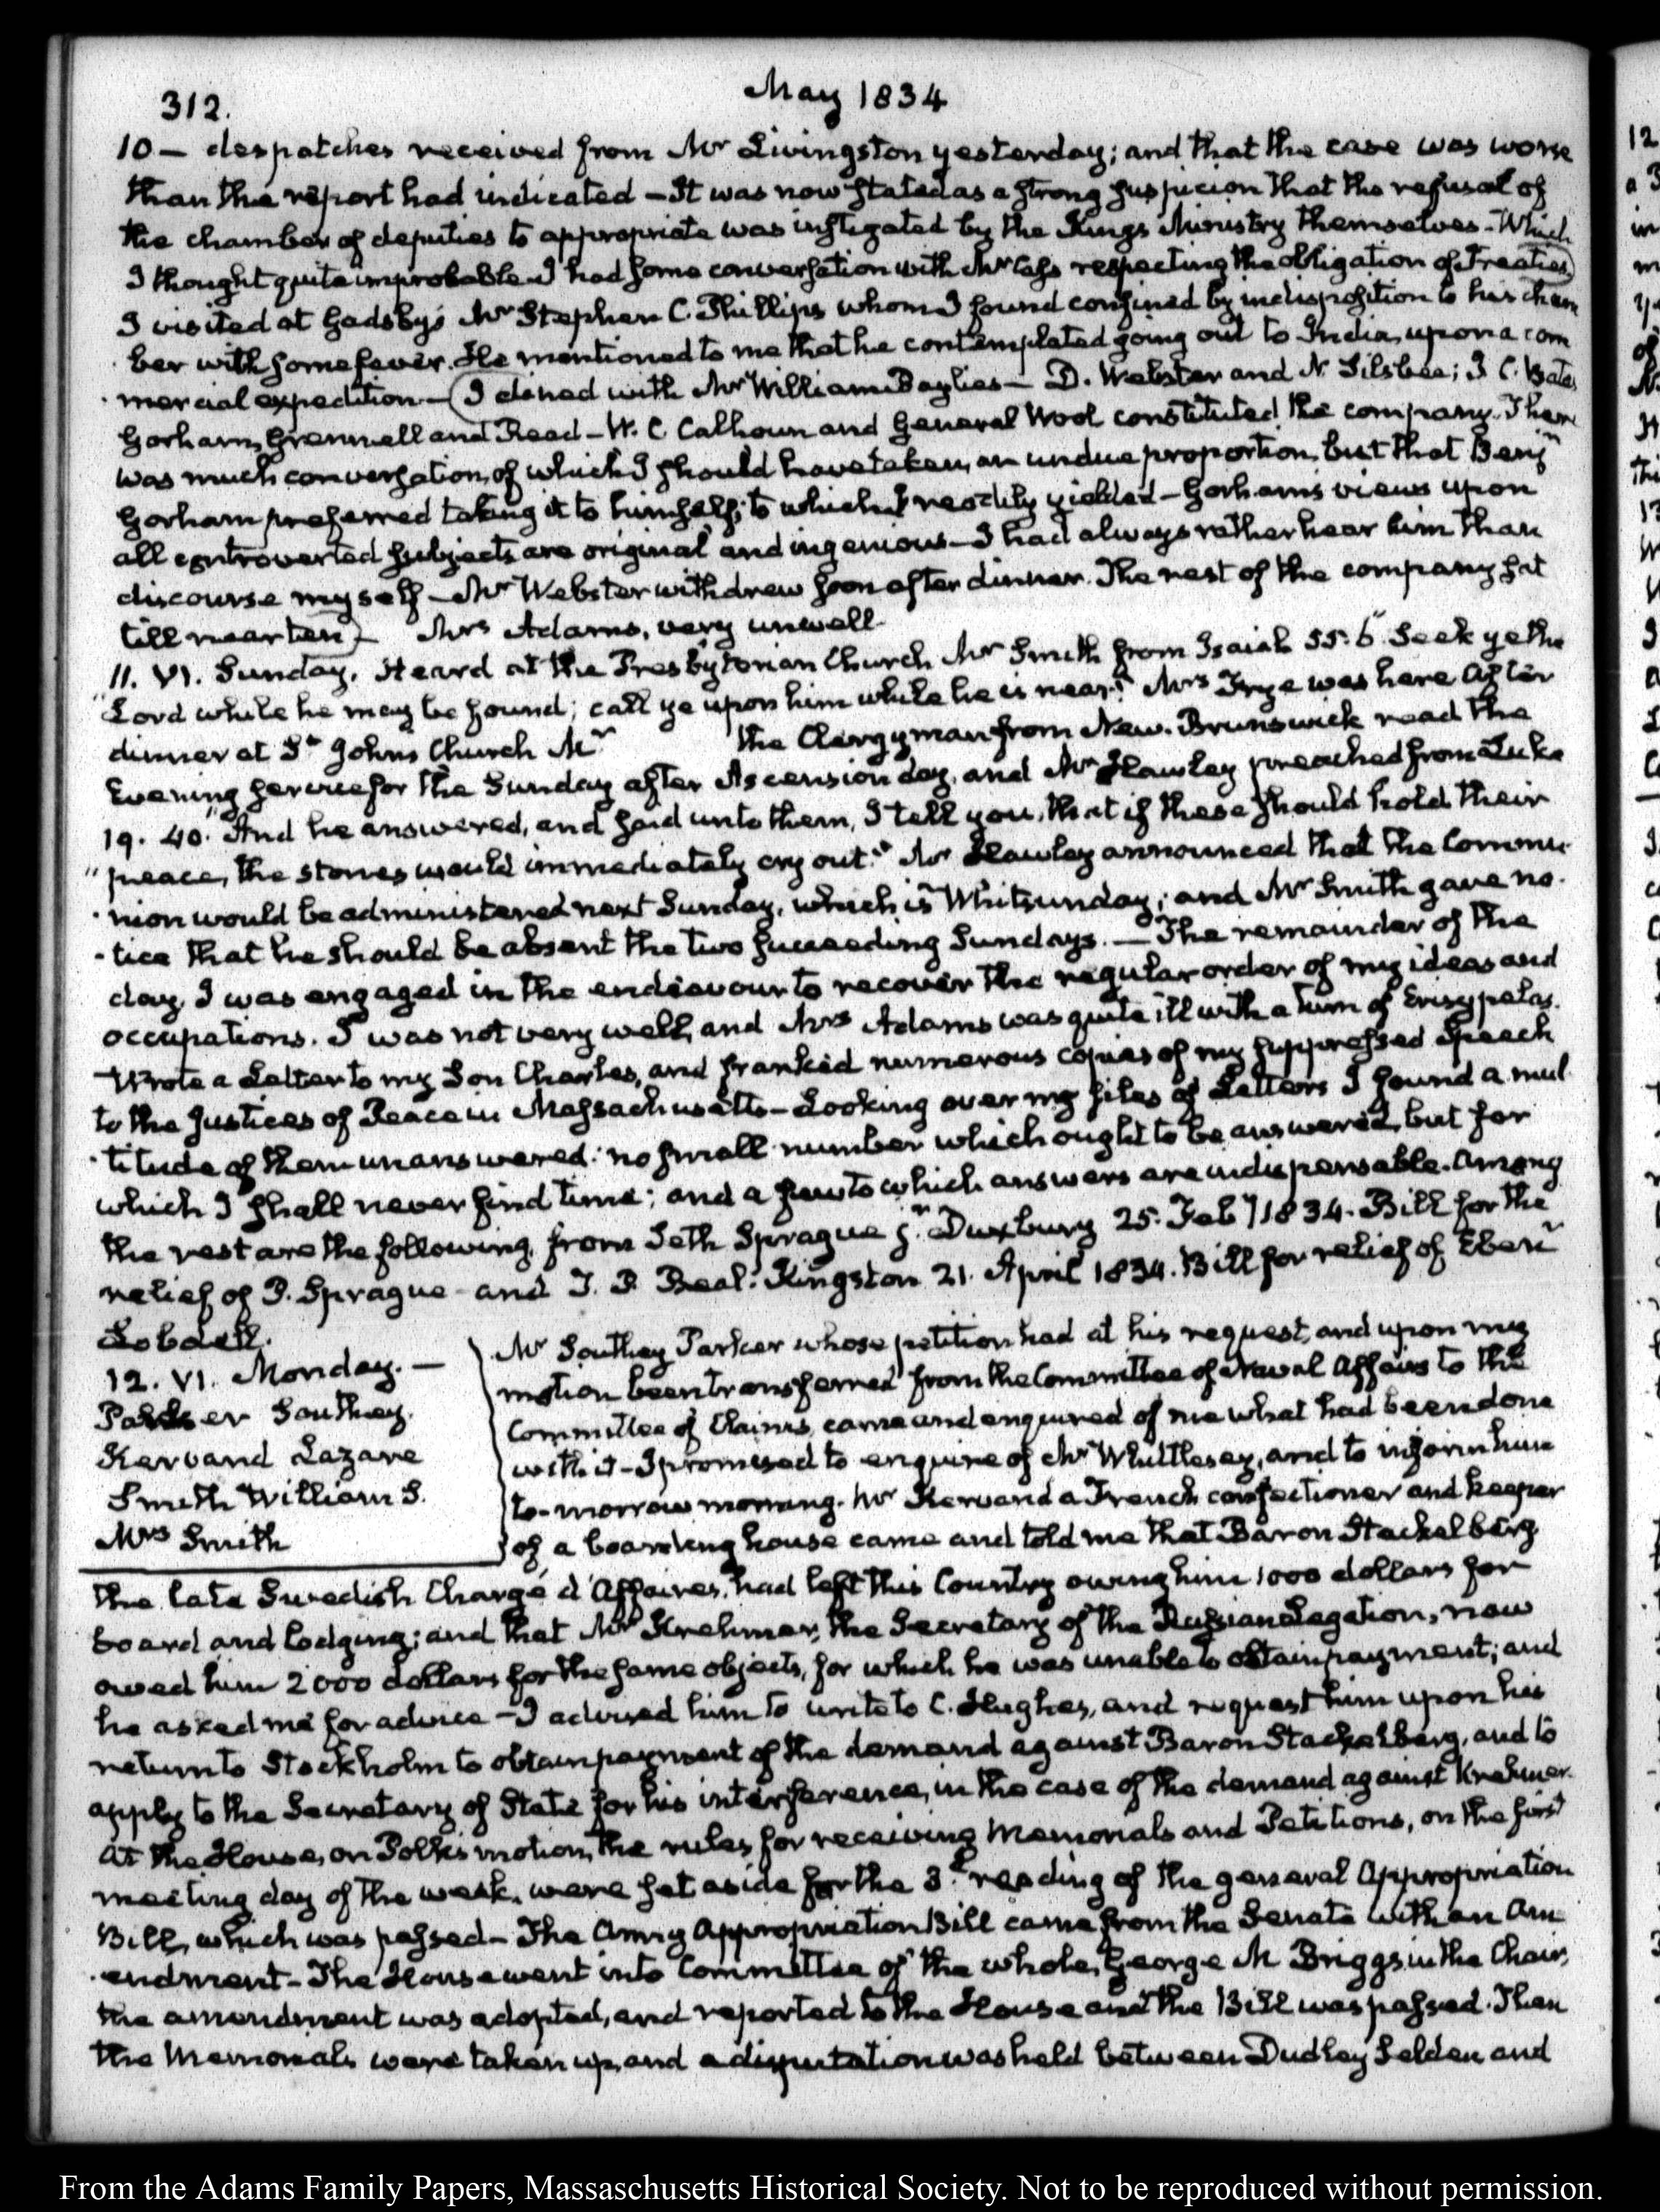 312.
May 1834
10 — despatches received from Mr Livingston yesterday; and that the case was worse
than the report had indicated — It was now stated as a strong suspicion that the refusal of
the chamber of deputies to appropriate was instigated by the Kings Ministry themselves — Which
I thought quite improbable. I had some conversation with Mr Cass respecting the obligation of Treaties)
I visited at Gadsby's Mr Stephen C. Phillips whom I found confined by indisposition to his cham
ber with some fever. He mentioned to me that he contemplated going out to India, upon a com
mercial expedition — (I dined with Mr William Baylies — D. Webster and N. Silsbee; I. C. Bates
Gorham, Grennell and Read — W. C. Calhoun and General Wool constituted the company. There
was much conversation, of which I should have taken, an undue proportion, but that Benjn
Gorham preferred taking it to himself; to which I readily yielded — Gorham's views upon
all controverted subjects are original and ingenious — I had always rather hear him than
discourse myself — Mr Webster withdrew soon after dinner. The rest of the company sat
till near ten) — Mrs Adams, very unwell.
11. VI. Sunday. Heard at the Presbyterian Church Mr Smith from Isaiah 55. 6. Seek ye the
"Lord while he may be found; call ye upon him while he is near." Mrs Frye was here After
dinner at St Johns Church Mr the Clergyman from New-Brunswick read the
Evening service for the Sunday after Ascension day, and Mr Hawley preached from Luke
19. 40. "And he answered, and said unto them, I tell you, that if these should hold their
"peace, the stones would immediately cry out." Mr Hawley announced that the Commu
nion would be administered next Sunday, which is Whitsunday; and Mr Smith gave no-
-tice that he should be absent the two succeeding Sundays. — The remainder of the
day, I was engaged in the endeavour to recover the regular order of my ideas and
occupations. I was not very well, and Mrs Adams was quite ill with a turn of Erisypelas.
— Wrote a Letter to my Son Charles, and franked numerous copies of my suppressed Speech
to the Justices of Peace in Massachusetts — Looking over my files of Letters I found a mul
titude of them unanswered: no small number which ought to be answered, but for
which I shall never find time; and a few to which answers are indispensable. Among
the rest are the following, from Seth Sprague jr. Duxbury 25. Feby 1834. Bill for the
relief of P. Sprague — and T. P. Beal. Kingston 21. April 1834. Bill for relief of Ebenr
Lobdell.
12. VI. Monday. —
Parker Southey.
Kervand Lazare
Smith William S.
Mrs Smith
Mr Southey Parker whose petition had at his request, and upon my
motion been transferred from the Committee of Naval Affairs to the
Committee of Claims, came and enquired of me what had been done
with it — I promised to enquire of Mr Whittlesey, and to inform him
to-morrow morning. Mr Kervand a French confectioner and keeper
of a boarding house came and told me that Baron Stackelberg
the late Swedish Chargé d'Affaires, had left this Country owing him 1000 dollars for
board and lodging; and that Mr Krehmer, the Secretary of the Russian Legation, now
owed him 2000 dollars for the same objects, for which he was unable to obtain payment; and
he asked me for advice — I advised him to write to C. Hughes, and request him upon his
return to Stockholm to obtain payment of the demand against Baron Stackelberg, and to
apply to the Secretary of State for his interference, in the case of the demand against Krehmer.
At the House, on Polk's motion, the rules for receiving Memorials and Petitions, on the first
meeting day of the week, were set aside for the 3d reading of the general Appropriation
Bill, which was passed — The Army Appropriation Bill came from the Senate with an Am
endment — The House went into Committee of the whole, George N. Briggs in the Chair,
the amendment was adopted, and reported to the House and the Bill was passed. Then
the Memorials were taken up, and a disputation was held between Dudley Selden and
From the Adams Family Papers, Massachusetts Historical Society. Not to be reproduced without permission.